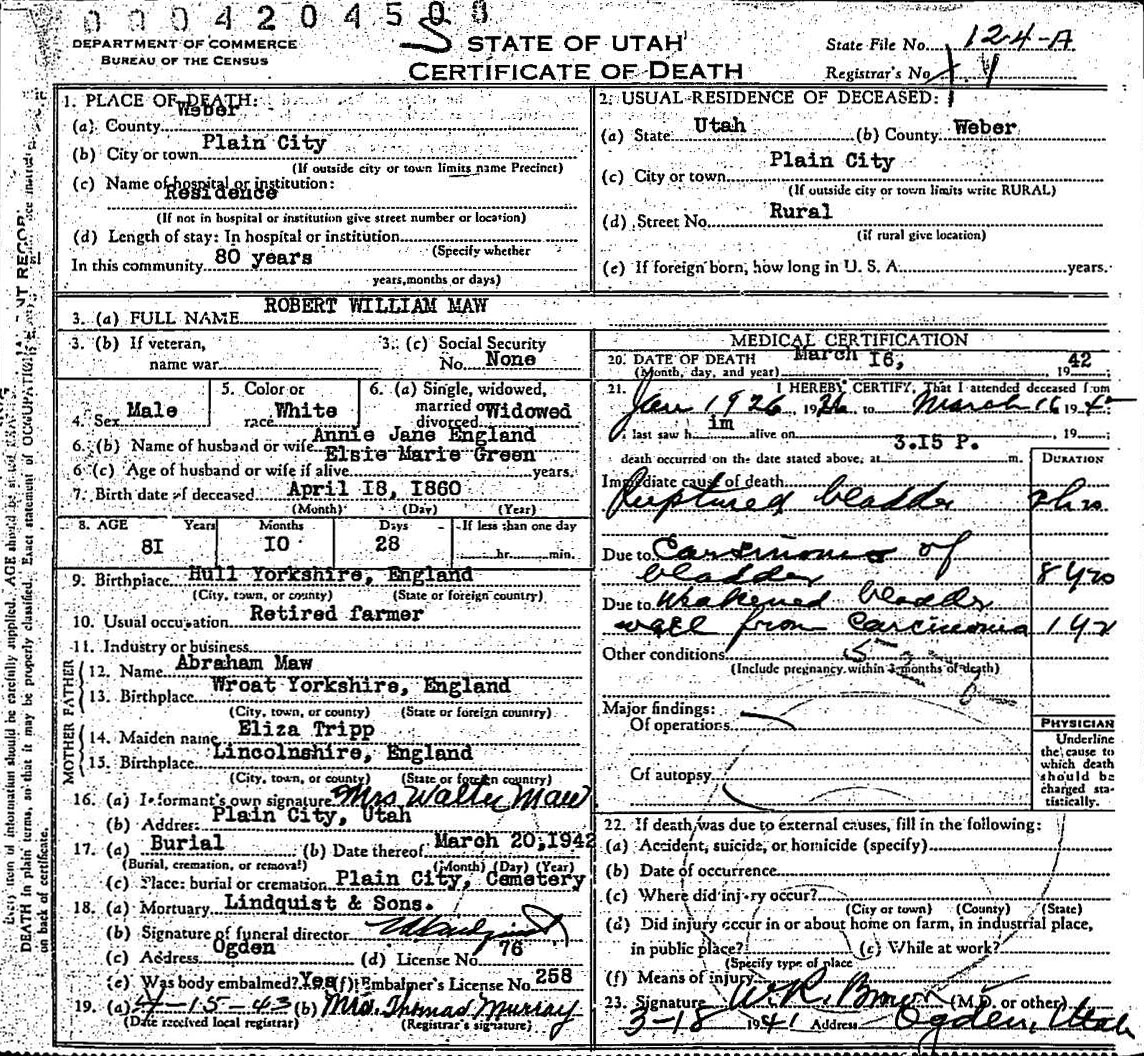 0004204500
DEPARTMENT OF COMMERCE
BUREAU OF THE CENSUS
STATE OF UTAH
CERTIFICATE OF DEATH
State File No. 124-A
Registrar's No.
1. PLACE OF DEATH:
(a) County Weber
(b) City or town Plain City
(If outside city or town limits name Precinct)
(c) Name of hospital or institution:
Residence
(If not in hospital or institution give street number or location)
(d) Length of stay: In hospital or institution
(Specify whether
In this community 80 years
years, months or days)
2. USUAL RESIDENCE OF DECEASED:
(a) State Utah (b) County Weber
(c) City or town Plain City
(If outside city or town limits write RURAL)
(d) Street No. Rural
(if rural give location)
(e) If foreign born, how long in U. S. A. years.
3. (a) FULL NAME ROBERT WILLIAM MAW
3. (b) If veteran, name war
3. (c) Social Security No. None
4. Sex Male
5. Color or race White
6. (a) Single, widowed, married or divorced Widowed
6. (b) Name of husband or wife Annie Jane England
Elsie Marie Green
6 (c) Age of husband or wife if alive years.
7. Birth date of deceased April 18, 1860
(Month) (Day) (Year)
8. AGE Years Months Days If less than one day
81 10 28 hr. min.
9. Birthplace Hull Yorkshire, England
(City, town, or county) (State or foreign country)
10. Usual occupation Retired farmer
11. Industry or business
FATHER
12. Name Abraham Maw
13. Birthplace Wroat Yorkshire, England
(City, town, or county) (State or foreign country)
MOTHER
14. Maiden name Eliza Tripp
15. Birthplace Lincolnshire, England
(City, town, or county) (State or foreign country)
16. (a) Informant's own signature Mrs Walter Maw
(b) Address Plain City, Utah
17. (a) Burial (b) Date thereof March 20, 1942
(Burial, cremation, or removal) (Month) (Day) (Year)
(c) Place: burial or cremation Plain City, Cemetery
18. (a) Mortuary Lindquist & Sons.
(b) Signature of funeral director
(c) Address Ogden (d) License No. 76
(e) Was body embalmed? Yes (f) Embalmer's License No. 258
19. (a) 4-15-43 (b) Mrs. Thomas Murray
(Date received local registrar) (Registrar's signature)
MEDICAL CERTIFICATION
20. DATE OF DEATH March 16, 1942
(Month, day, and year)
21. I HEREBY CERTIFY, That I attended deceased from
Jan 1926, 1926 to March 16 194
I last saw him alive on , 19
death occurred on the date stated above, at 3.15 P. m.
DURATION
Immediate cause of death
Ruptured bladder 2 hrs.
Due to Carcinoma of
bladder 8 yrs
Due to Weakened bladder
wall from carcinoma 1 yr
Other conditions
(Include pregnancy within 3 months of death)
Major findings:
Of operations
Of autopsy
PHYSICIAN
Underline
the cause to
which death
should be
charged sta-
tistically.
22. If death was due to external causes, fill in the following:
(a) Accident, suicide, or homicide (specify)
(b) Date of occurrence
(c) Where did injury occur?
(City or town) (County) (State)
(d) Did injury occur in or about home on farm, in industrial place,
in public place? (e) While at work?
(Specify type of place
(f) Means of injury
23. Signature W.R. Brown (M.D. or other)
3-18 1941 Address Ogden, Utah
Every item of information should be carefully supplied. AGE should be stated
DEATH in plain terms, so that it may be properly classified. Exact statement of OCCUPATION
on back of certificate.